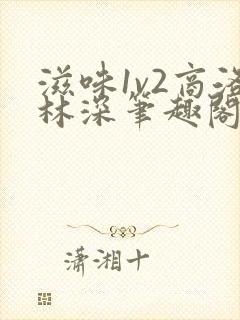 滋味1v2高洛
林深笔趣阁
潇湘十